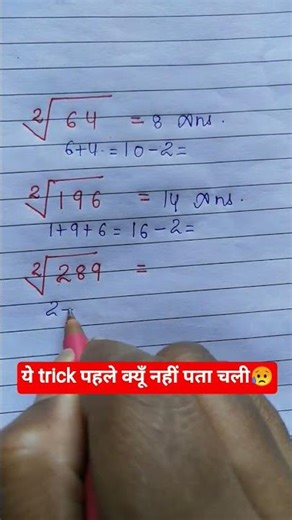 ²√64 = 8 Ans.
6+4.=10-2=
²√196 = 14 Ans.
1+9+6=16-2=
²√289 =
2-
ये trick पहले क्यूँ नहीं पता चली😥